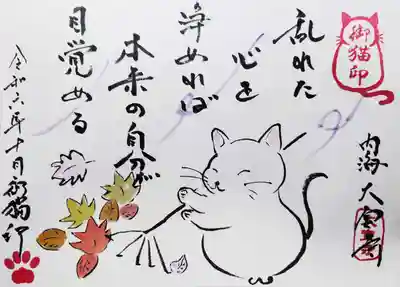 御猫印
内海 大
乱れた
心を
浄めれば
本来の自分が
目覚める
令和六年十月御猫印